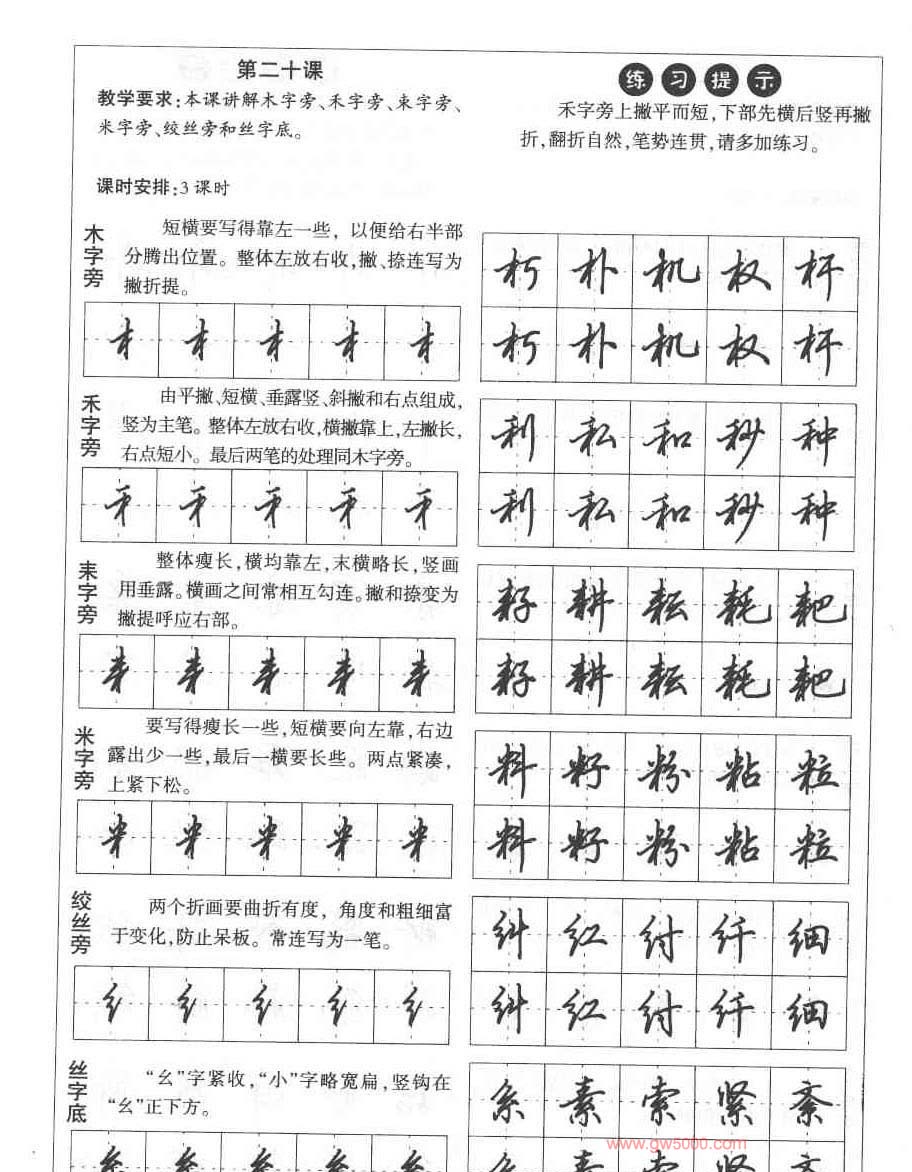 第二十课
教学要求:本课讲解木字旁、禾字旁、束字旁、
米字旁、绞丝旁和丝字底。
课时安排:3课时
练习提示
禾字旁上撇平而短,下部先横后竖再撇
折,翻折自然,笔势连贯,请多加练习。
木字旁
短横要写得靠左一些，以便给右半部
分腾出位置。整体左放右收,撇、捺连写为
撇折提。
朽朴机权杆
朽朴机权杆
禾字旁
由平撇、短横、垂露竖、斜撇和右点组成,
竖为主笔。整体左放右收,横撇靠上,左撇长,
右点短小。最后两笔的处理同木字旁。
利私和秒种
利私和秒种
耒字旁
整体瘦长,横均靠左,末横略长,竖画
用垂露。横画之间常相互勾连。撇和捺变为
撇提呼应右部。
耔耕耘耗耙
耔耕耘耗耙
米字旁
要写得瘦长一些,短横要向左靠,右边
露出少一些,最后一横要长些。两点紧凑,
上紧下松。
料籽粉粘粒
料籽粉粘粒
绞丝旁
两个折画要曲折有度，角度和粗细富
于变化,防止呆板。常连写为一笔。
纠红纣纤细
纠红纣纤细
丝字底
“幺”字紧收,“小”字略宽扁,竖钩在
“幺”正下方。
系素索紧紊
www.gw5000.com